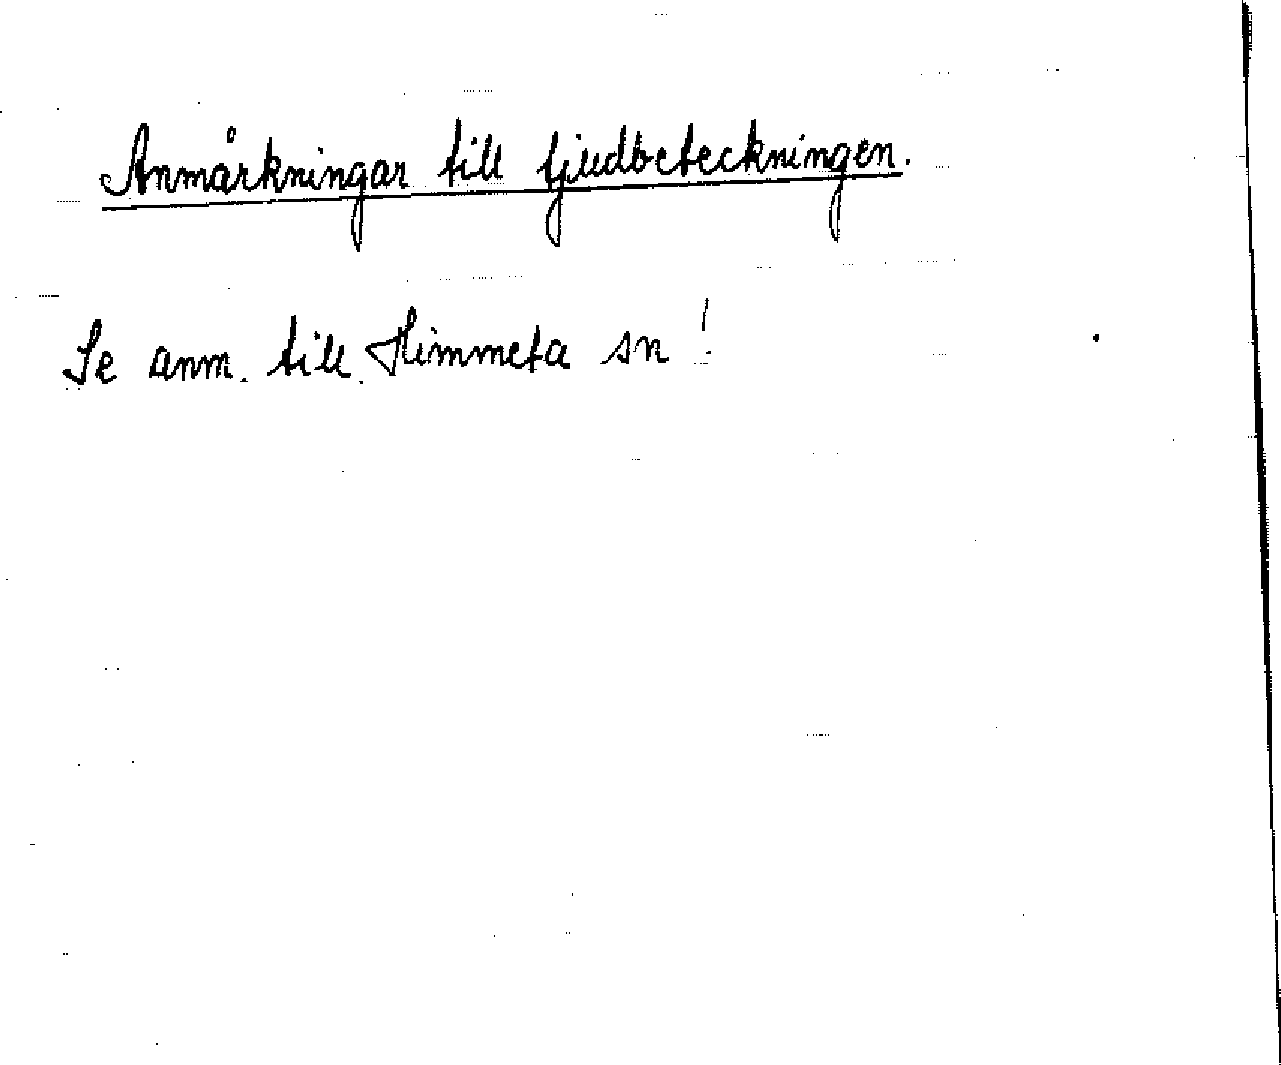 Anmårkningar till ljudbeteckningen.
Se anm. till Himmeta sn!